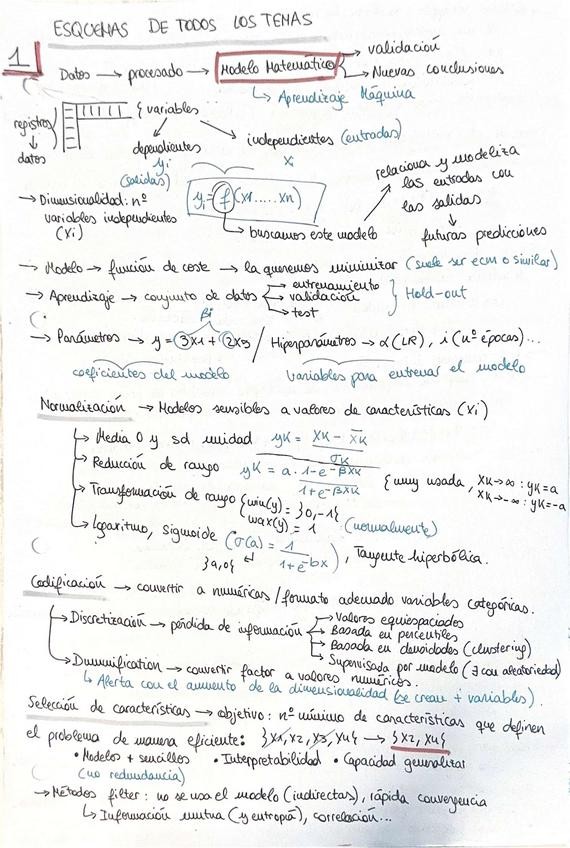 ESQUEMAS DE TODOS LOS TEMAS
1
Datos → procesado → Modelo Matemático → validación
→ Nuevas conclusiones
↳ Aprendizaje Máquina
registros ↓ datos
{ variables
dependientes yi (salidas)
independientes (entradas) xi
→ Dimensionalidad: nº variables independientes (xi)
yi = f(x1.....xn)
→ buscamos este modelo
relaciona y modeliza las entradas con las salidas
↓
futuras predicciones
→ Modelo → función de coste → la queremos minimizar (suele ser ecm o similar)
→ Aprendizaje → conjunto de datos → entrenamiento
→ validación
→ test
} Hold-out
βi
→ Parámetros → y = 3x1 + 2x3 / Hiperparámetros → α(LR), i (nº épocas)...
coeficientes del modelo
variables para entrenar el modelo
Normalización → Modelos sensibles a valores de características (xi)
↳ Media 0 y sd unidad yK = (xK - x̄K) / σK
↳ Reducción de rango yK = a · (1-e^-βxK) / (1+e^-βxK) { muy usada, xK→∞ : yK=a
xK→-∞ : yK=-a
↳ Transformación de rango { min(y) = }0,-1{
max(y) = 1 (normalmente)
↳ logaritmo, sigmoide (σ(a) = 1 / (1+e^-bx)), Tangente hiperbólica.
}a,0{ ↵
Codificación → convertir a numéricas/formato adecuado variables categóricas.
→ Discretización → pérdida de información → Valores equiespaciados
→ Basada en percentiles
→ Basada en densidades (clustering)
→ Supervisada por modelo (∃ con aleatoriedad)
↳ Dummification → convertir factor a valores numéricos.
↳ Alerta con el aumento de la dimensionalidad (se crean + variables).
Selección de características → objetivo: nº mínimo de características que definen
el problema de manera eficiente: }x1, x2, x3, x4{ → }x2, x4{
• Modelos + sencillos • Interpretabilidad • Capacidad generalizar
(no redundancia)
→ Métodos filter: no se usa el modelo (indirectas), rápida convergencia
↳ Información mutua (y entropía), correlación...